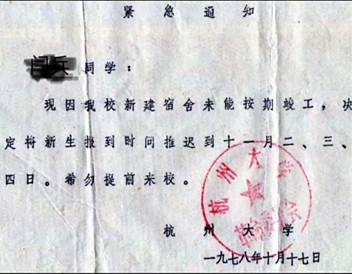 紧急通知
同学：
现因我校新建宿舍未能按期竣工，决
定将新生报到时间推迟到十一月二、三、
四日。希勿提前来校。
杭州大学
一九七八年十月十七日
杭州大学